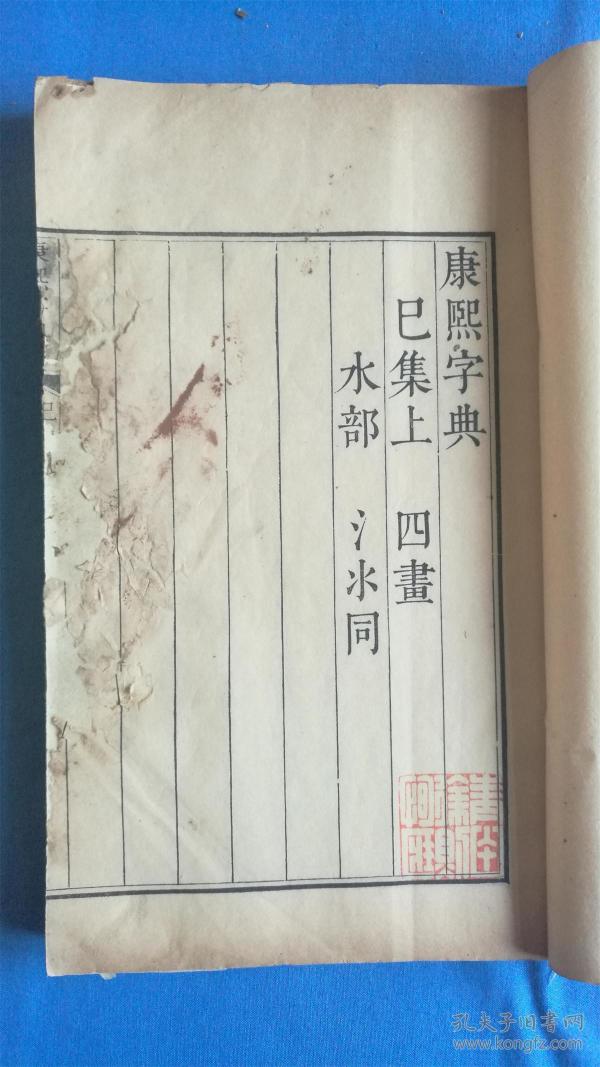 康熙字典
巳集上　四畫
水部　氵氺同
孔夫子旧书网
www.kongfz.com